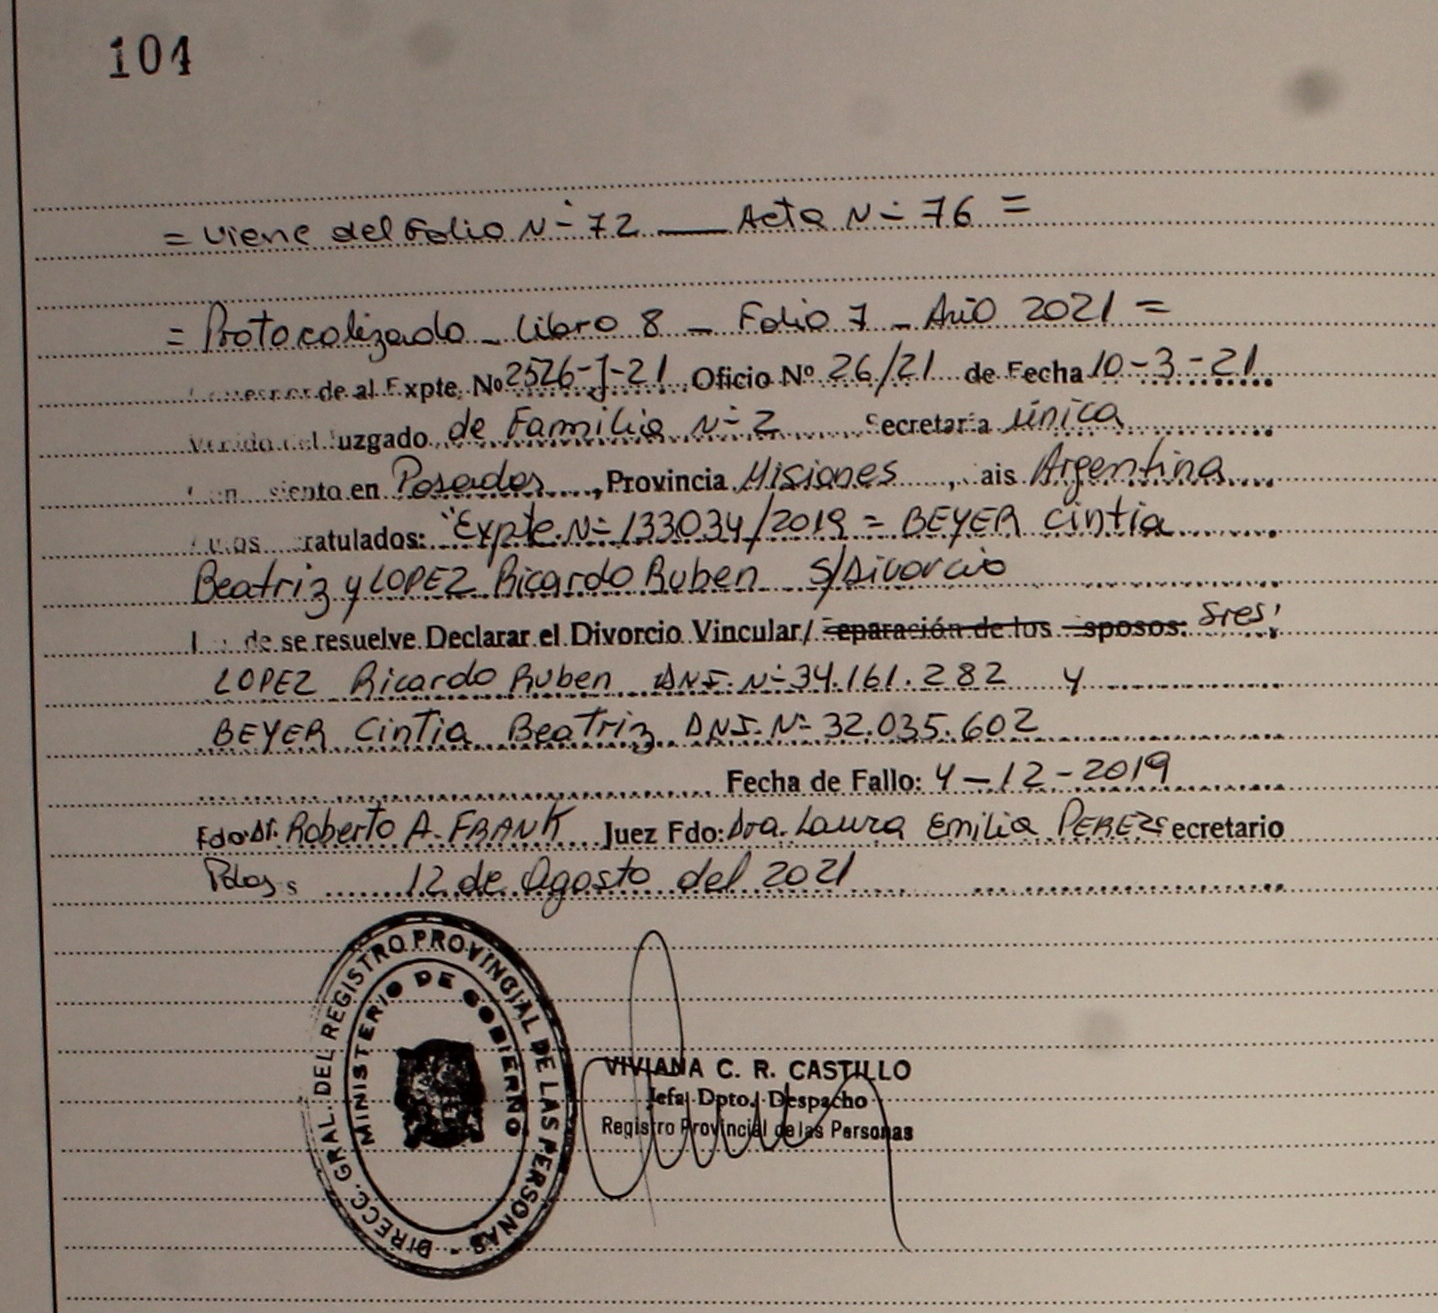 104
= Viene del Folio N° 72 — Acta N° 76 =
= Protocolizado - Libro 8 - Folio 7 - Año 2021 =
de al Expte. Nº 2526-J-21 Oficio Nº 26/21 de Fecha 10-3-21
Juzgado de Familia N° 2 Secretaria única
en Posadas, Provincia Misiones, Pais Argentina
caratulados: "Expte. N° 133034/2019 = BEYER Cintia
Beatriz y LOPEZ Ricardo Ruben S/Divorcio
de se resuelve Declarar el Divorcio Vincular/ Separación de los esposos: Sres.
LOPEZ Ricardo Ruben DNI. N° 34.161.282 y
BEYER Cintia Beatriz DNI. N° 32.035.602
Fecha de Fallo: 4-12-2019
Fdo: Dr. Roberto A. FRANK Juez Fdo: Dra. Laura Emilia PEREZ Secretario
Pdas 12 de Agosto del 2021
DIRECC. GRAL. DEL REGISTRO PROVINCIAL DE LAS PERSONAS -
MINISTERIO DE GOBIERNO
VIVIANA C. R. CASTILLO
Jefa Dpto. Despacho
Registro Provincial de las Personas